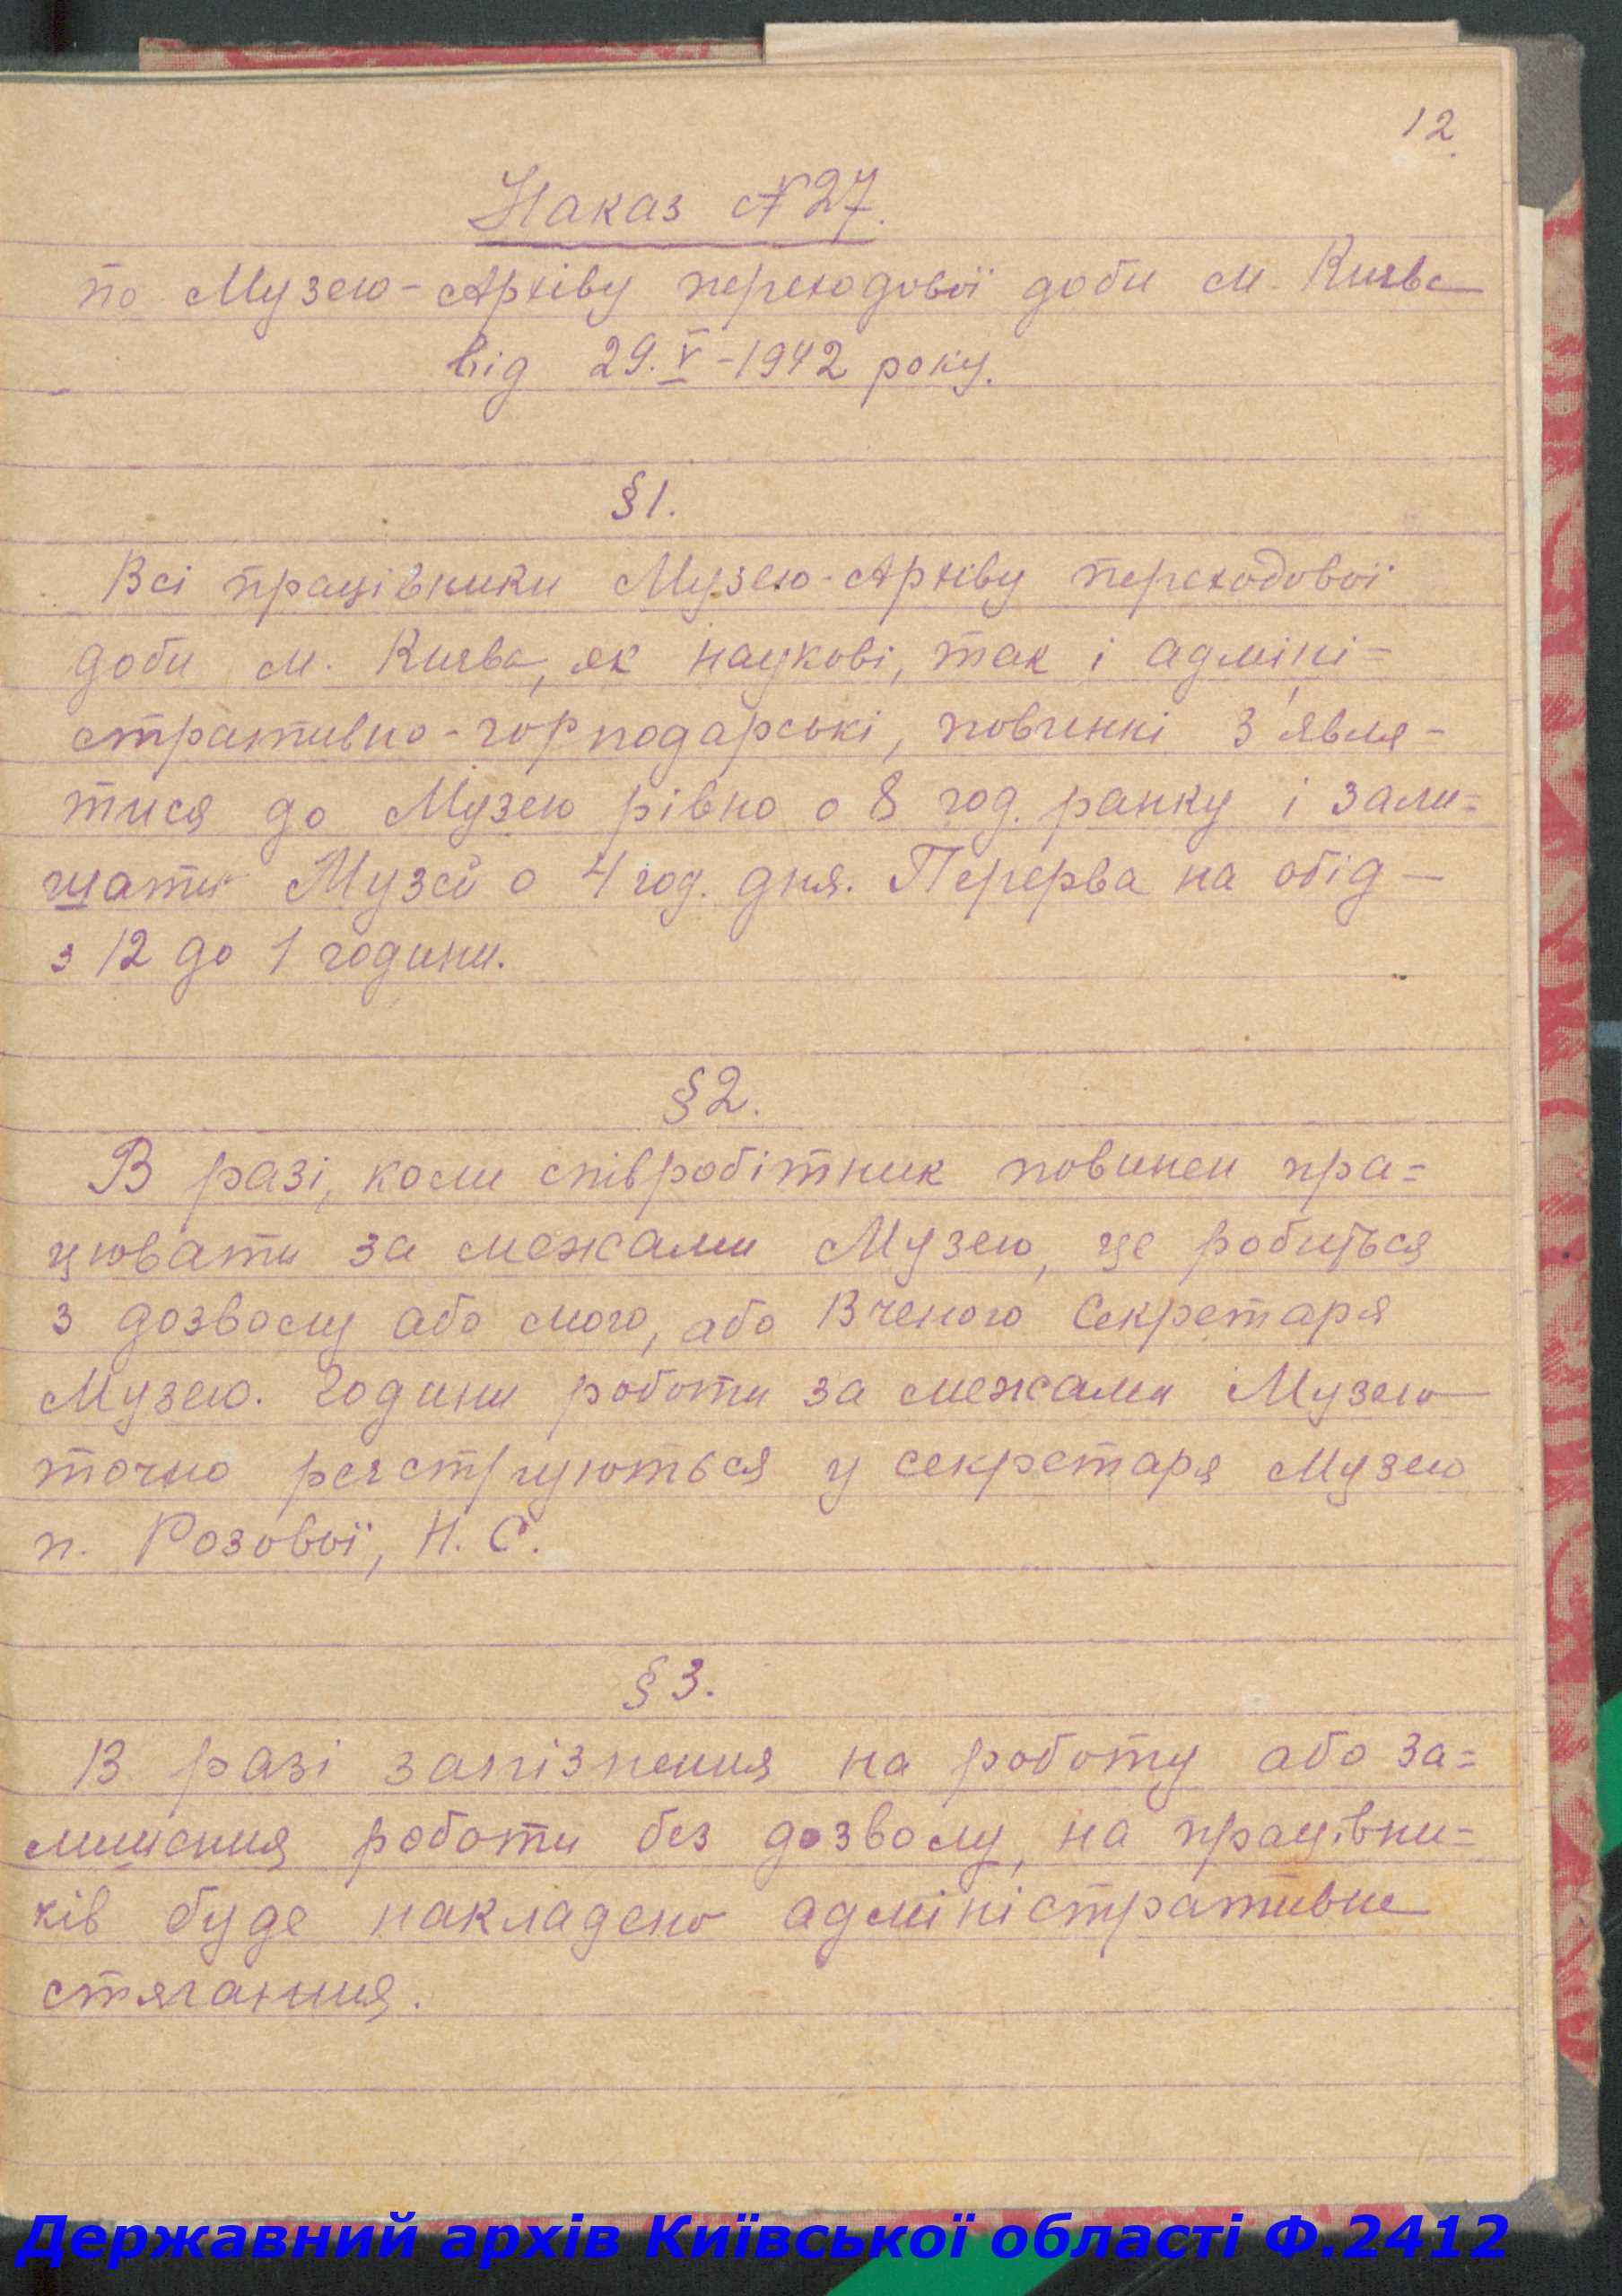 12.
Наказ № 27.
по Музею-Архіву переходової доби м. Києва
від 29.V-1942 року.
§1.
Всі працівники Музею-Архіву переходової
доби м. Києва, як наукові, так і адміні=
стративно-господарські, повинні з'явля-
тися до Музею рівно о 8 год. ранку і зали=
шати Музей о 4 год. дня. Перерва на обід —
з 12 до 1 години.
§2.
В разі, коли співробітник повинен пра=
цювати за межами Музею, це робиться
з дозволу або мого, або Вченого Секретаря
Музею. Години роботи за межами Музею
точно реєструються у секретаря Музею
п. Розової, Н. С.
§3.
В разі запізнення на роботу або за=
лишення роботи без дозволу, на працівни=
ків буде накладено адміністративне
стягання.
Державний архів Київської області Ф.2412